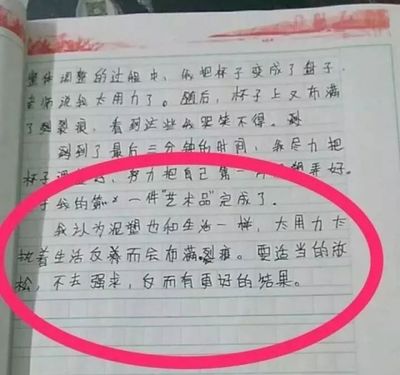 整体调整的过程中，依把杯子变成了盘子，
老师说我太用力了。随后，杯子上又布满
了裂痕，看到这些我哭笑不得。
到了最后三分钟的时间，我尽力把
杯子，努力把自己第一
我的第一件"艺术品"完成了。
我认为泥塑也和生活一样，太用力去
抱着生活反而会布满裂痕。要适当的放
松，不去强求，反而有更好的结果。